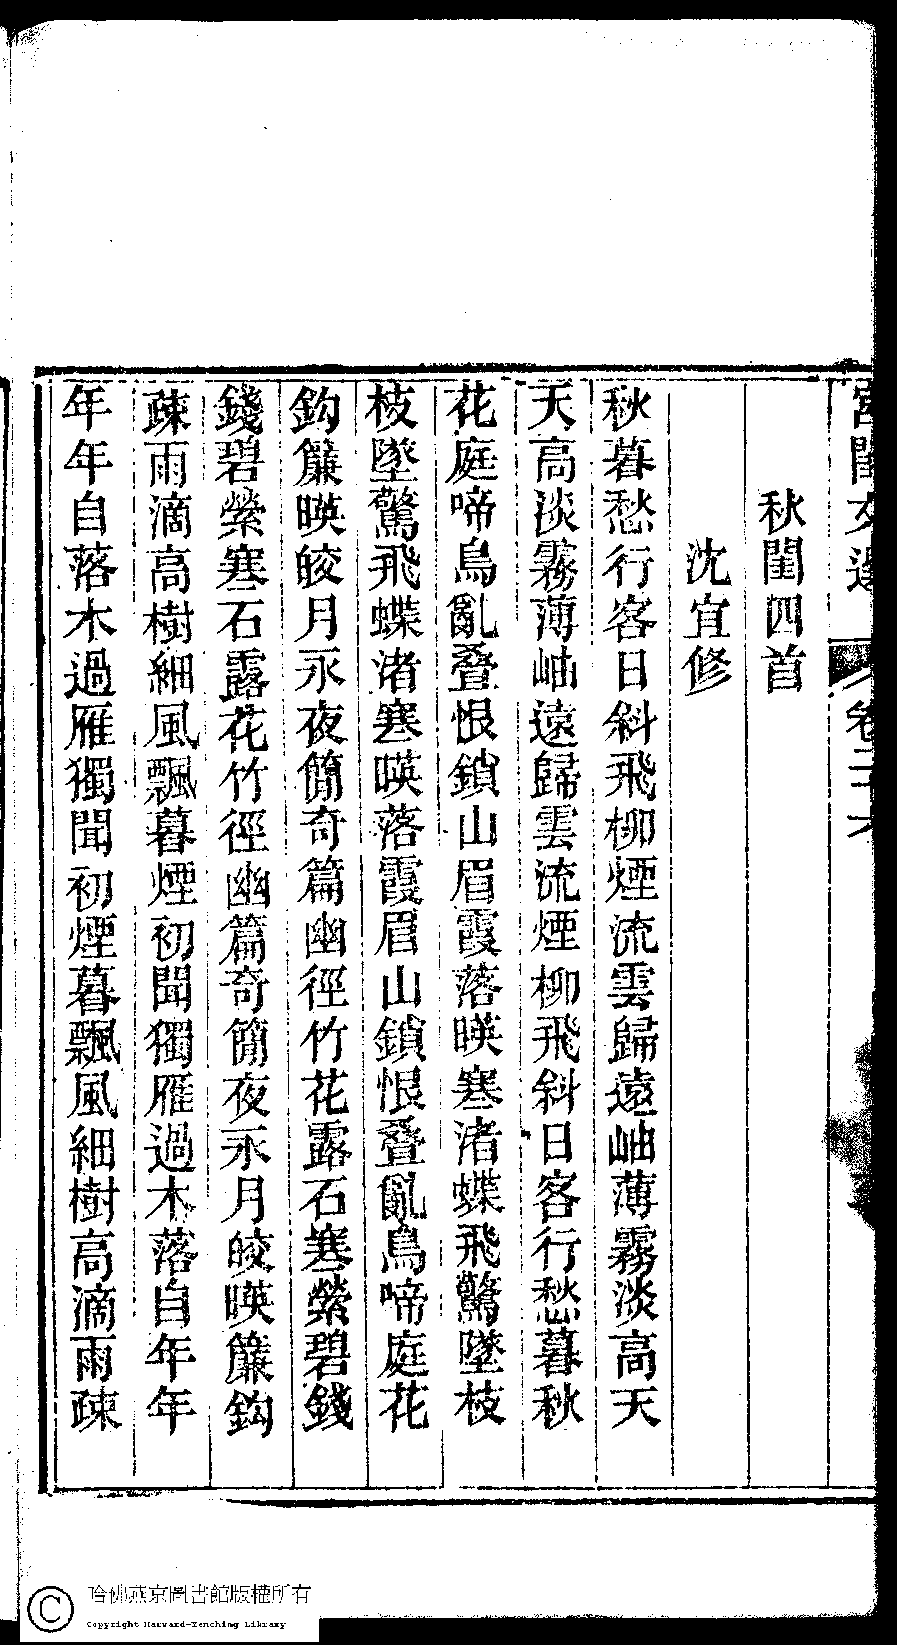 宮閨文選　卷二十六
秋閨四首
沈宜修
秋暮愁行客日斜飛柳煙流雲歸遠岫薄霧淡高天
天高淡霧薄岫遠歸雲流煙柳飛斜日客行愁暮秋
花庭啼鳥亂叠恨鎖山眉霞落暎寒渚蝶飛驚墜枝
枝墜驚飛蝶渚寒暎落霞眉山鎖恨叠亂鳥啼庭花
鈎簾暎皎月永夜簡奇篇幽徑竹花露石寒縈碧錢
錢碧縈寒石露花竹徑幽篇奇簡夜永月皎暎簾鈎
疎雨滴高樹細風飄暮煙初聞獨雁過木落自年年
年年自落木過雁獨聞初煙暮飄風細樹高滴雨疎
哈佛燕京圖書館版權所有
Copyright Harvard-Yenching Library